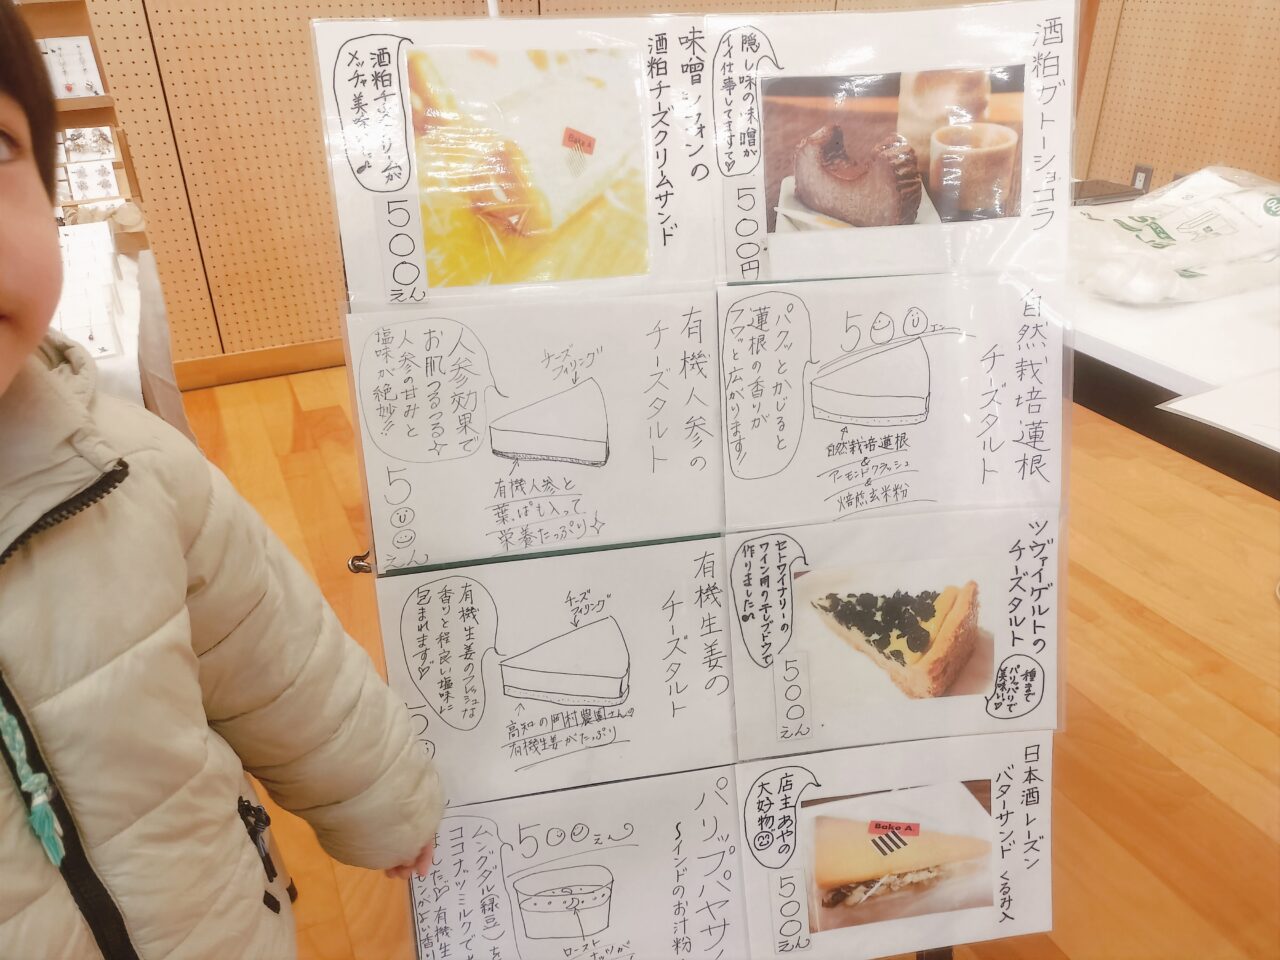 酒粕ガトーショコラ
隠し味の味噌が
イイ仕事してますて♡
500円
味噌シフォンの
酒粕チーズクリームサンド
酒粕チーズクリームが
メッチャ美味
500えん
Bake A.
自然栽培蓮根
チーズタルト
パクッとかじると
蓮根の香りが
フワッと広がります!!
500エン
自然栽培蓮根
&
アーモンドクラッシュ
&
焙煎玄米粉
有機人参の
チーズタルト
チーズ
フィリング
人参効果で
お肌つるつる☆
人参の甘みと
塩味が絶妙!!
500えん
有機人参と
葉っぱも入って
栄養たっぷり☆
ツヴァイゲルトの
チーズタルト
種まで
パリッパリで
美味しい♡
セトワイナリーの
ワイン用の干しブドウで
作りました♪
500えん
有機生姜の
チーズタルト
チーズ
フィリング
有機生姜のフレッシュな
香りと程良い塩味に
包まれます♡
高知の岡村農園さん
有機生姜がたっぷり
日本酒レーズン
バターサンド くるみ入
店主あやの
大好物
500えん
Bake A.
パリップパヤサン
〜インドのお汁粉
500えん
ムングダル(緑豆)を
ココナッツミルクで
ました♡有機生
モンがよい香り
ロースト